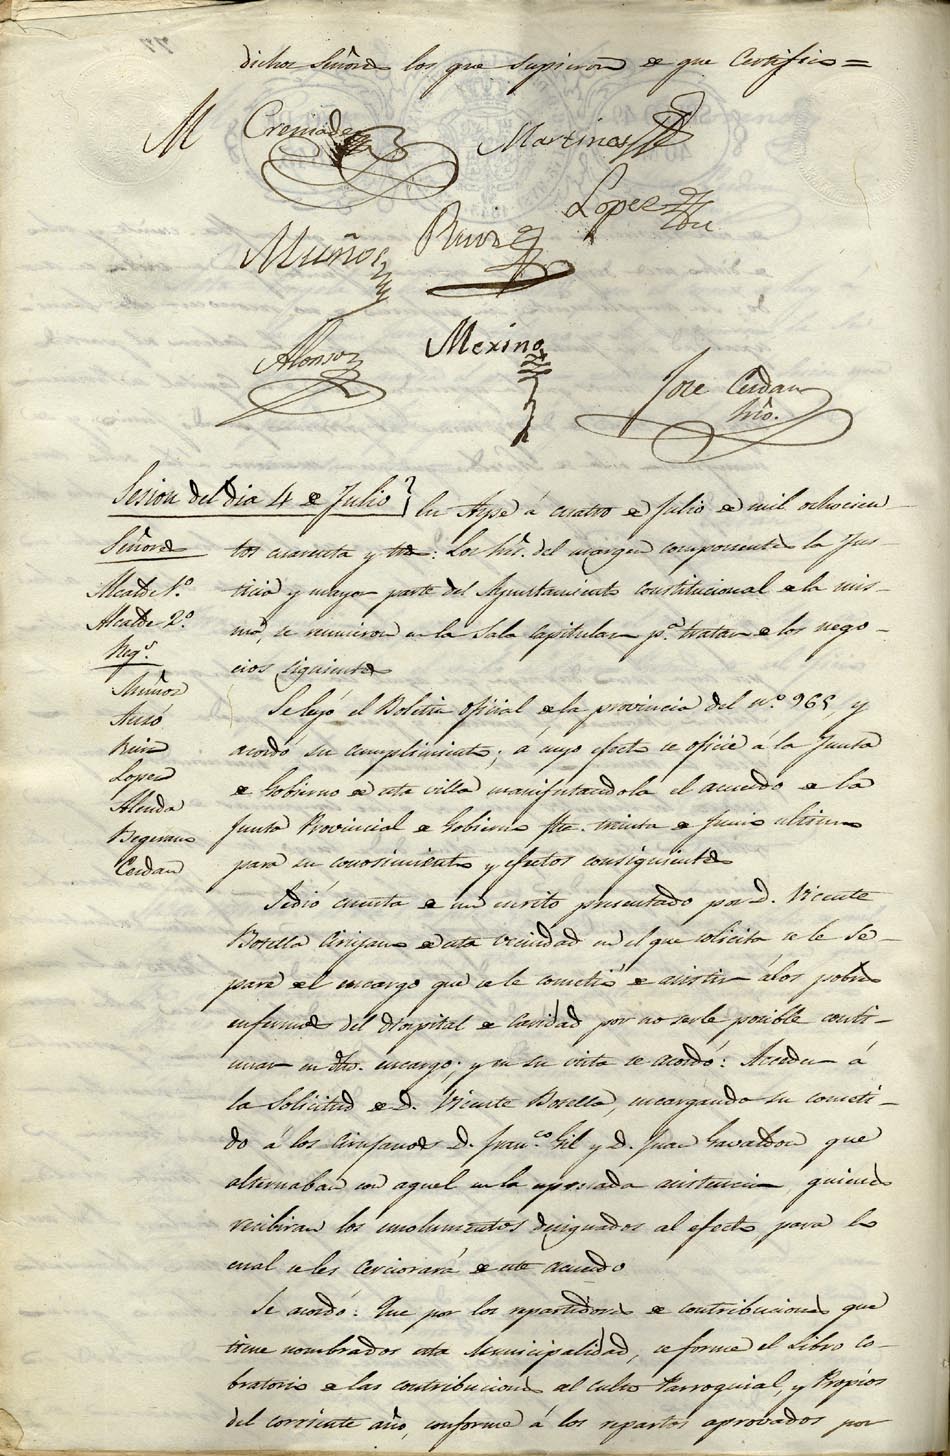 dichos Señores los que supieron de que Certifico=
M Cremades
Martines
Lopez
Muños
Ruiz
Alonso
Merino
Jose Cerdan
Srio.
Sesion del dia 4 de Julio
Señores
Alcalde 1.º
Alcalde 2.º
Reg.s
Muños
Ausó
Ruiz
Lopez
Alenda
Cerdan
En Aspe á cuatro de Julio de mil ochocien-
tos cuarenta y tres: Los Sres. del margen componentes la Jus-
ticia y mayor parte del Ayuntamiento constitucional de la mis-
ma, se reunieron en la Sala Capitular p.a tratar de los nego-
cios siguientes
Se leyó el Boletin oficial de la provincia del n.º 965, y
acordó su cumplimiento; á cuyo efecto se oficie á la Junta
de Gobierno de esta villa manifestandola el acuerdo de la
Junta Provincial de Gobierno fha. treinta de Junio ultimo
para su conosimiento y efectos consiguientes
Se dió cuenta de un escrito presentado por D. Vicente
Botella Cirujano de esta vecindad en el que solicita se le se-
pare del encargo que se le cometió de asistir á los pobres
enfermos del Hospital de Caridad por no serle posible conti-
nuar en dho. encargo; y en su vista se acordó: Acceder á
la Solicitud de D. Vicente Botella, encargando su cometi-
do á los Cirujanos D. Fran.co Gil y D. Juan Gavaldon que
alternaban con aquel en la espresada asistencia, quienes
recibiran los emolumentos designados al efecto para lo
cual se les Cerciorará de este acuerdo
Se acordó: Que por los repartidores de contribuciones que
tiene nombrados esta Municipalidad, se forme el Libro Co-
bratorio de las contribuciones del Culto Parroquial, y Propios
del corriente año, conforme á los repartos aprovados por